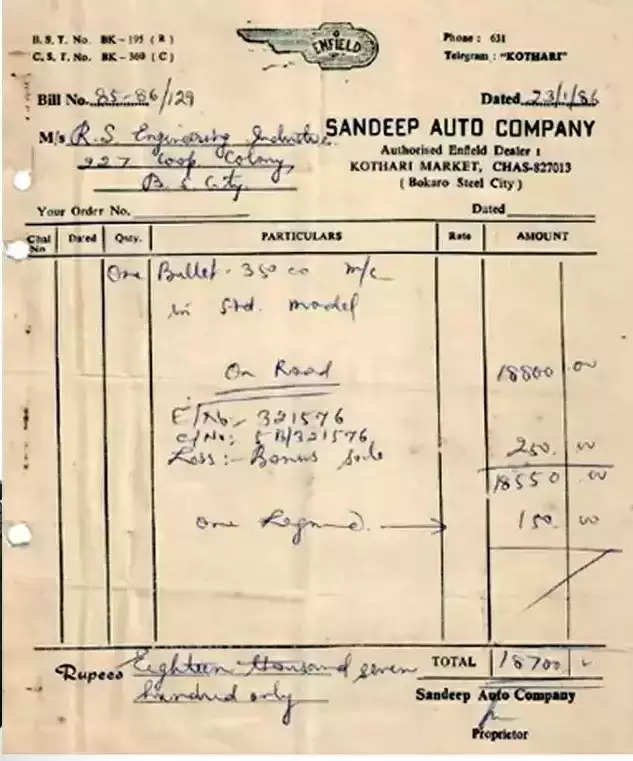 B. S. T. No. BK-195 ( R )
C. S. T. No. BK-360 ( C )
ENFIELD
Phone : 631
Telegram : "KOTHARI"
Bill No. 85-86/129
Dated 23/1/86
M/s R. S. Engineering Industries
227 Coop. Colony,
B. S. City
SANDEEP AUTO COMPANY
Authorised Enfield Dealer :
KOTHARI MARKET, CHAS-827013
( Bokaro Steel City )
Your Order No.
Dated
Chal No Dated Qnty. PARTICULARS Rate AMOUNT
One Bullet - 350 cc m/c
in Std. model
On Road 18800 .00
E/No.- 321576
C/No: 5B/321576
Less :- Bonus 250. 00
18550 .00
one 150. 00
Rupees Eighteen thousand seven
hundred only
TOTAL 18700
Sandeep Auto Company
Proprietor